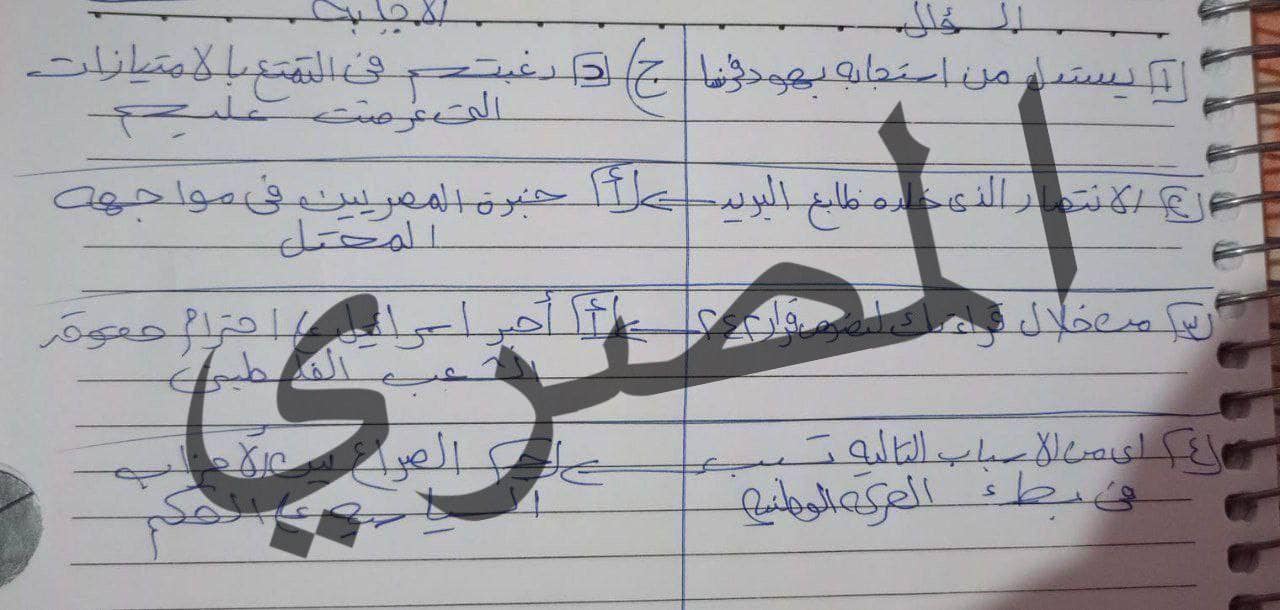 السؤال
الاجابة
[١] يستدل من استجابه يهود فرنسا
ج) [د] رغبتهم فى التمتع بالامتيازات
التى عرضت عليهم
[٢] الانتصار الذى خلده طابع البريد
[أ] خبرة المصريين فى مواجهه
المحتل
[٣] من خلال قراءتك لنصوص قرار ٢٤٢
[أ] أجبر اسرائيل على احترام حقوق
الشعب الفلسطينى
[٤] اى من الاسباب التاليه تسبب
فى بطء الحركه الوطنيه
الصراع بين الأحزاب
السياسيه على الحكم
المصري